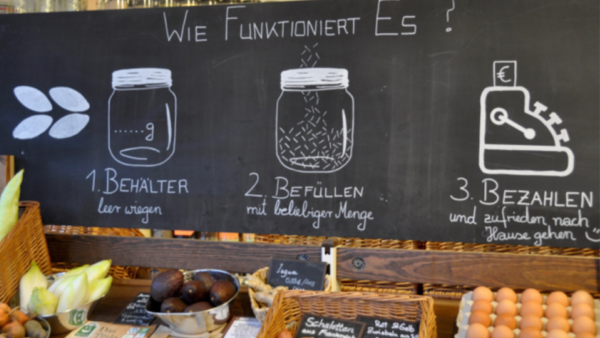 WIE FUNKTIONIERT ES ?
€
......g
1. BEHÄLTER
leer wiegen
2. BEFÜLLEN
mit beliebiger Menge
3. BEZAHLEN
und zufrieden nach
Hause gehen
Ingwer
Schalotten
Rot & Gelb
Zwiebeln